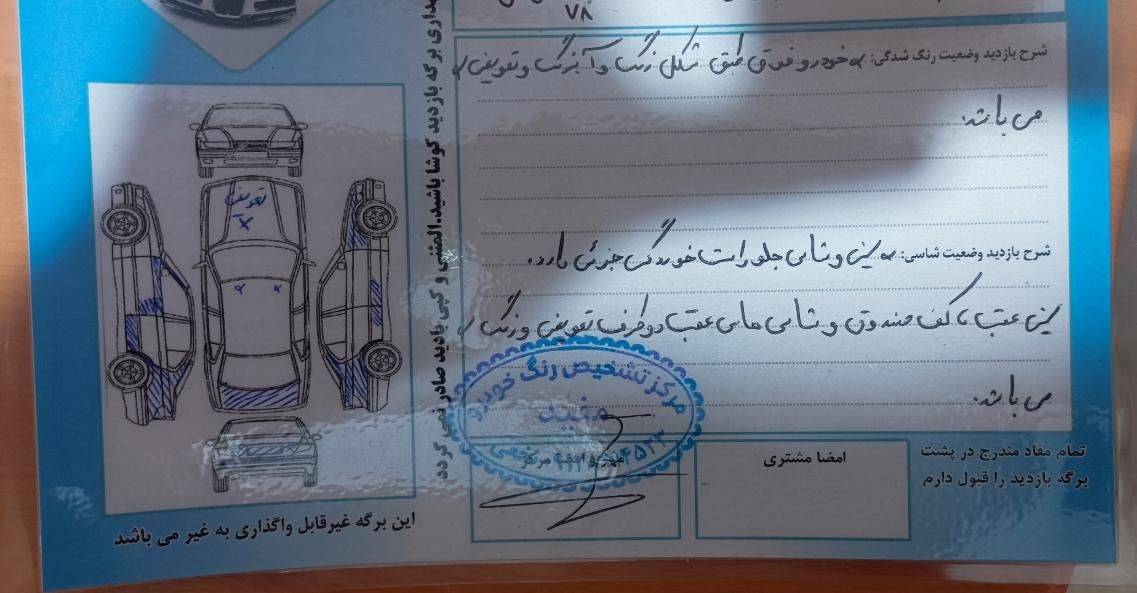 ۷۸
شرح بازدید وضعیت رنگ شدگی: خودرو فوق طبق شکل رنگ و آبرنگ و تعویض
می باشد.
شرح بازدید وضعیت شاسی: سینی و شاسی جلو راست خوردگی جزئی دارد.
سینی عقب تا کف صندوق و شاسی های عقب دو طرف تعویض و رنگ
می باشد.
تعویض
برگه بازدید کوشا باشید.المثنی و کپی بازدید صادر نمی گردد
مرکز تشخیص رنگ خودرو
مفید
مهر و امضا مرکز
امضا مشتری
تمام مفاد مندرج در پشت
برگه بازدید را قبول دارم
این برگه غیرقابل واگذاری به غیر می باشد